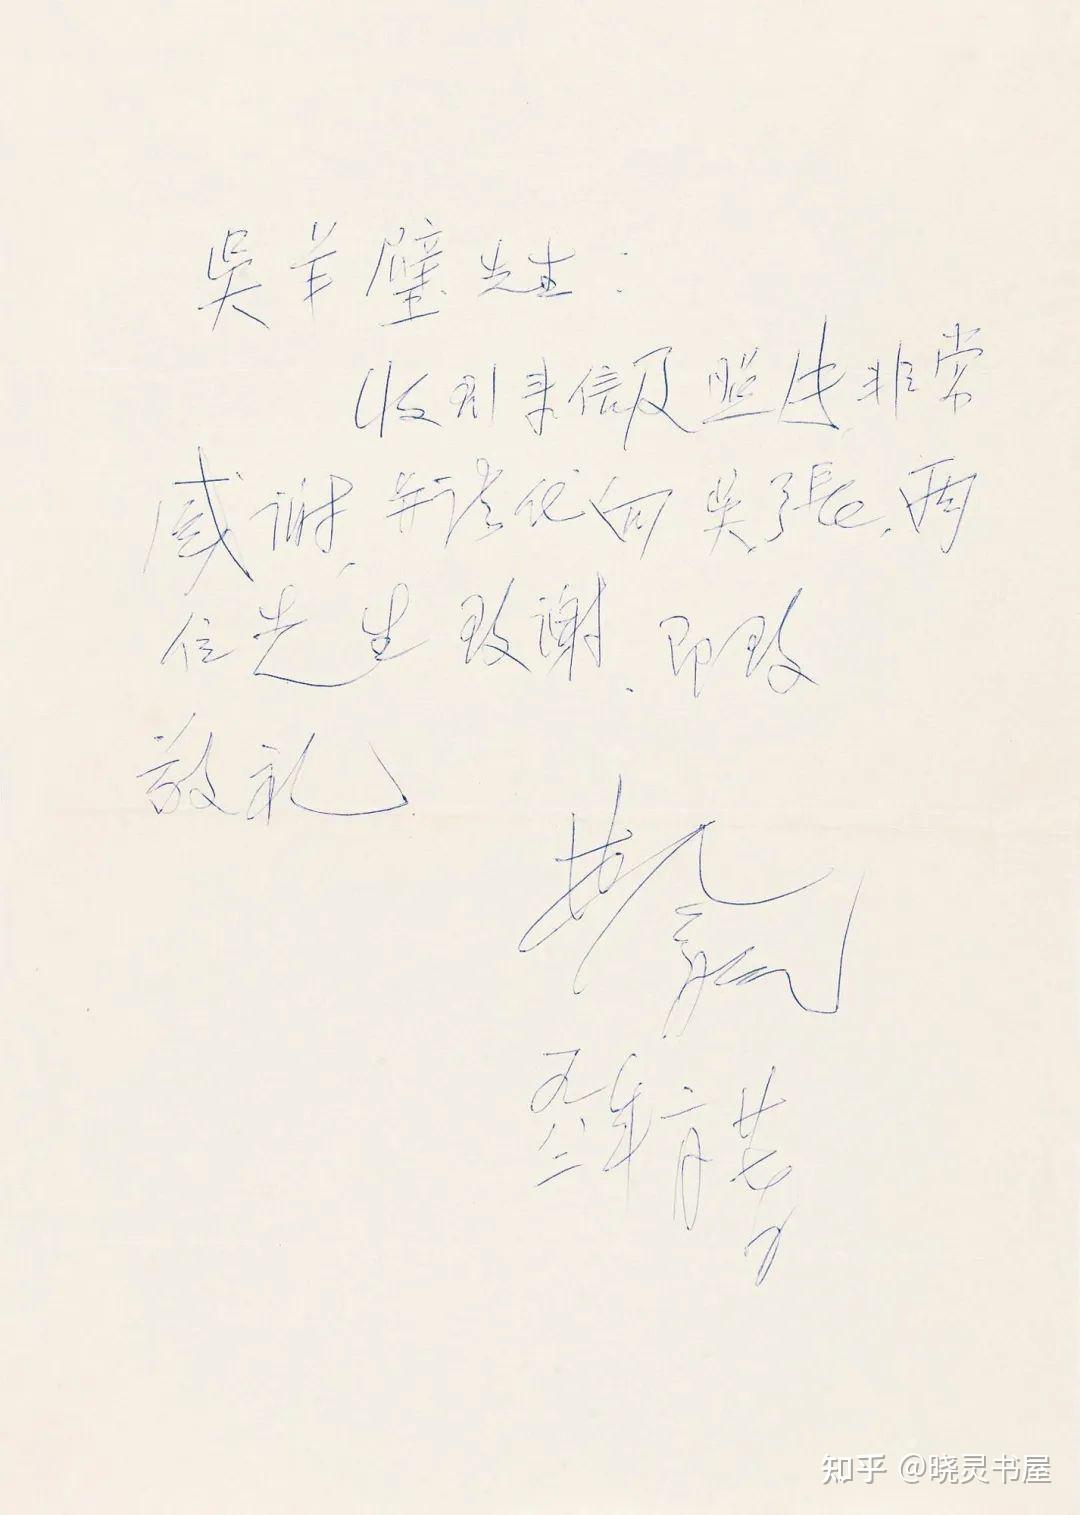 吳羊璧先生:
收到来信及照片,非常
感谢,并请代向吴、張、两
位先生致谢.即致
敬礼.
一九八二年六月廿
知乎 @晓灵书屋